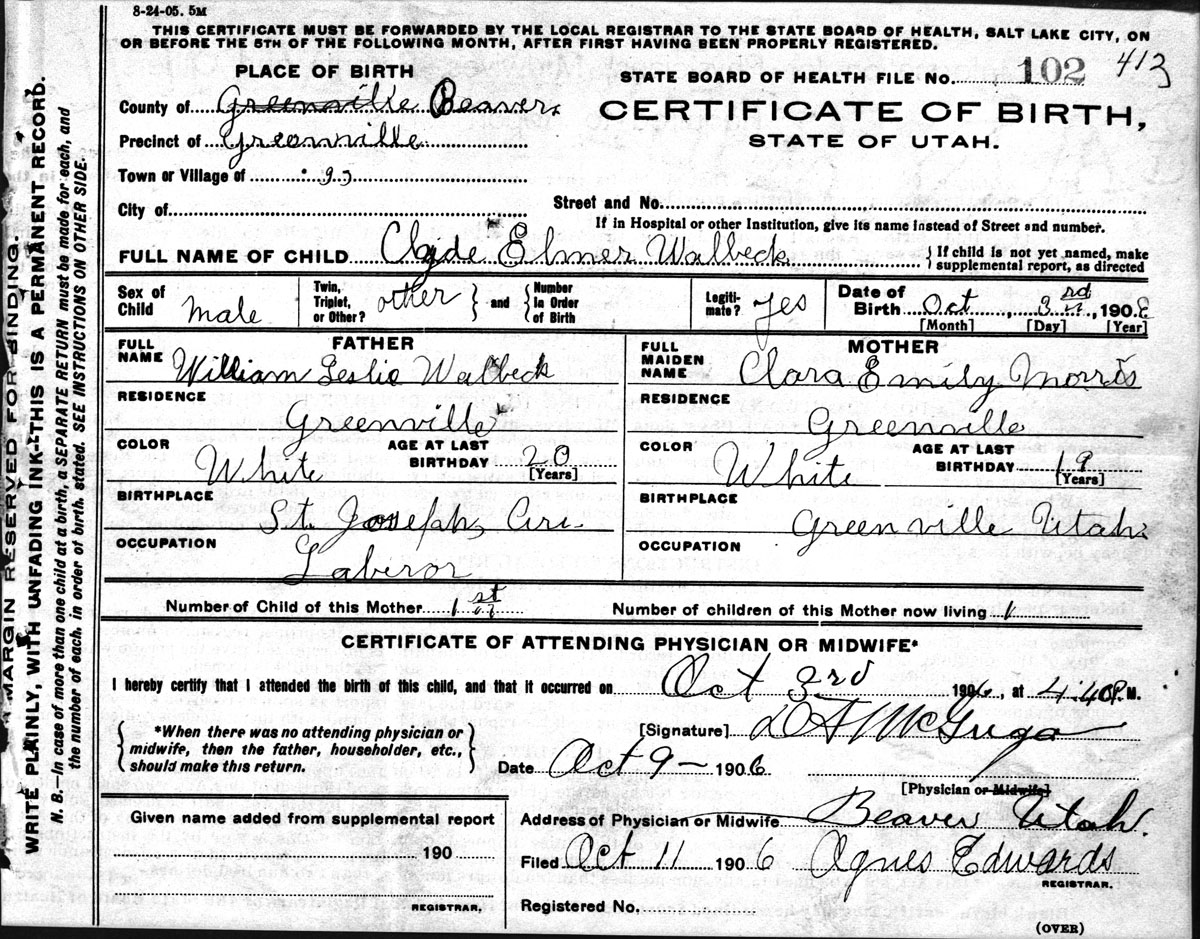 8-24-05. 5M
THIS CERTIFICATE MUST BE FORWARDED BY THE LOCAL REGISTRAR TO THE STATE BOARD OF HEALTH, SALT LAKE CITY, ON
OR BEFORE THE 5TH OF THE FOLLOWING MONTH, AFTER FIRST HAVING BEEN PROPERLY REGISTERED.
PLACE OF BIRTH
STATE BOARD OF HEALTH FILE NO. 102 413
County of Greenville Beaver
CERTIFICATE OF BIRTH,
Precinct of Greenville
STATE OF UTAH.
Town or Village of
City of
Street and No.
If in Hospital or other Institution, give its name instead of Street and number.
FULL NAME OF CHILD Clyde Elmer Walbeck
{If child is not yet named, make
supplemental report, as directed
Sex of Child Male
Twin, Triplet, or Other? other
and
Number In Order of Birth
Legitimate? yes
Date of Birth Oct 3rd, 190
[Month] [Day] [Year]
FATHER
FULL NAME William Leslie Walbeck
RESIDENCE
Greenville
COLOR White
AGE AT LAST BIRTHDAY 20
[Years]
BIRTHPLACE
St. Joseph, Ari.
OCCUPATION
Laberor
MOTHER
FULL MAIDEN NAME Clara Emily Morris
RESIDENCE
Greenville
COLOR White
AGE AT LAST BIRTHDAY 19
[Years]
BIRTHPLACE
Greenville Utah.
OCCUPATION
Number of Child of this Mother 1st
Number of children of this Mother now living 1
CERTIFICATE OF ATTENDING PHYSICIAN OR MIDWIFE*
I hereby certify that I attended the birth of this child, and that it occurred on Oct 3rd 1906, at 4:40 P.M.
{*When there was no attending physician or
midwife, then the father, householder, etc.,
should make this return.}
[Signature]
Date Oct 9 - 1906
[Physician or Midwife]
Address of Physician or Midwife Beaver Utah.
Given name added from supplemental report
190
REGISTRAR.
Filed Oct 11 1906 Agnes Edwards
REGISTRAR.
Registered No.
(OVER)
MARGIN RESERVED FOR BINDING.
WRITE PLAINLY, WITH UNFADING INK-THIS IS A PERMANENT RECORD.
N. B.—In case of more than one child at a birth, a SEPARATE RETURN must be made for each, and
the number of each, in order of birth, stated. SEE INSTRUCTIONS ON OTHER SIDE.